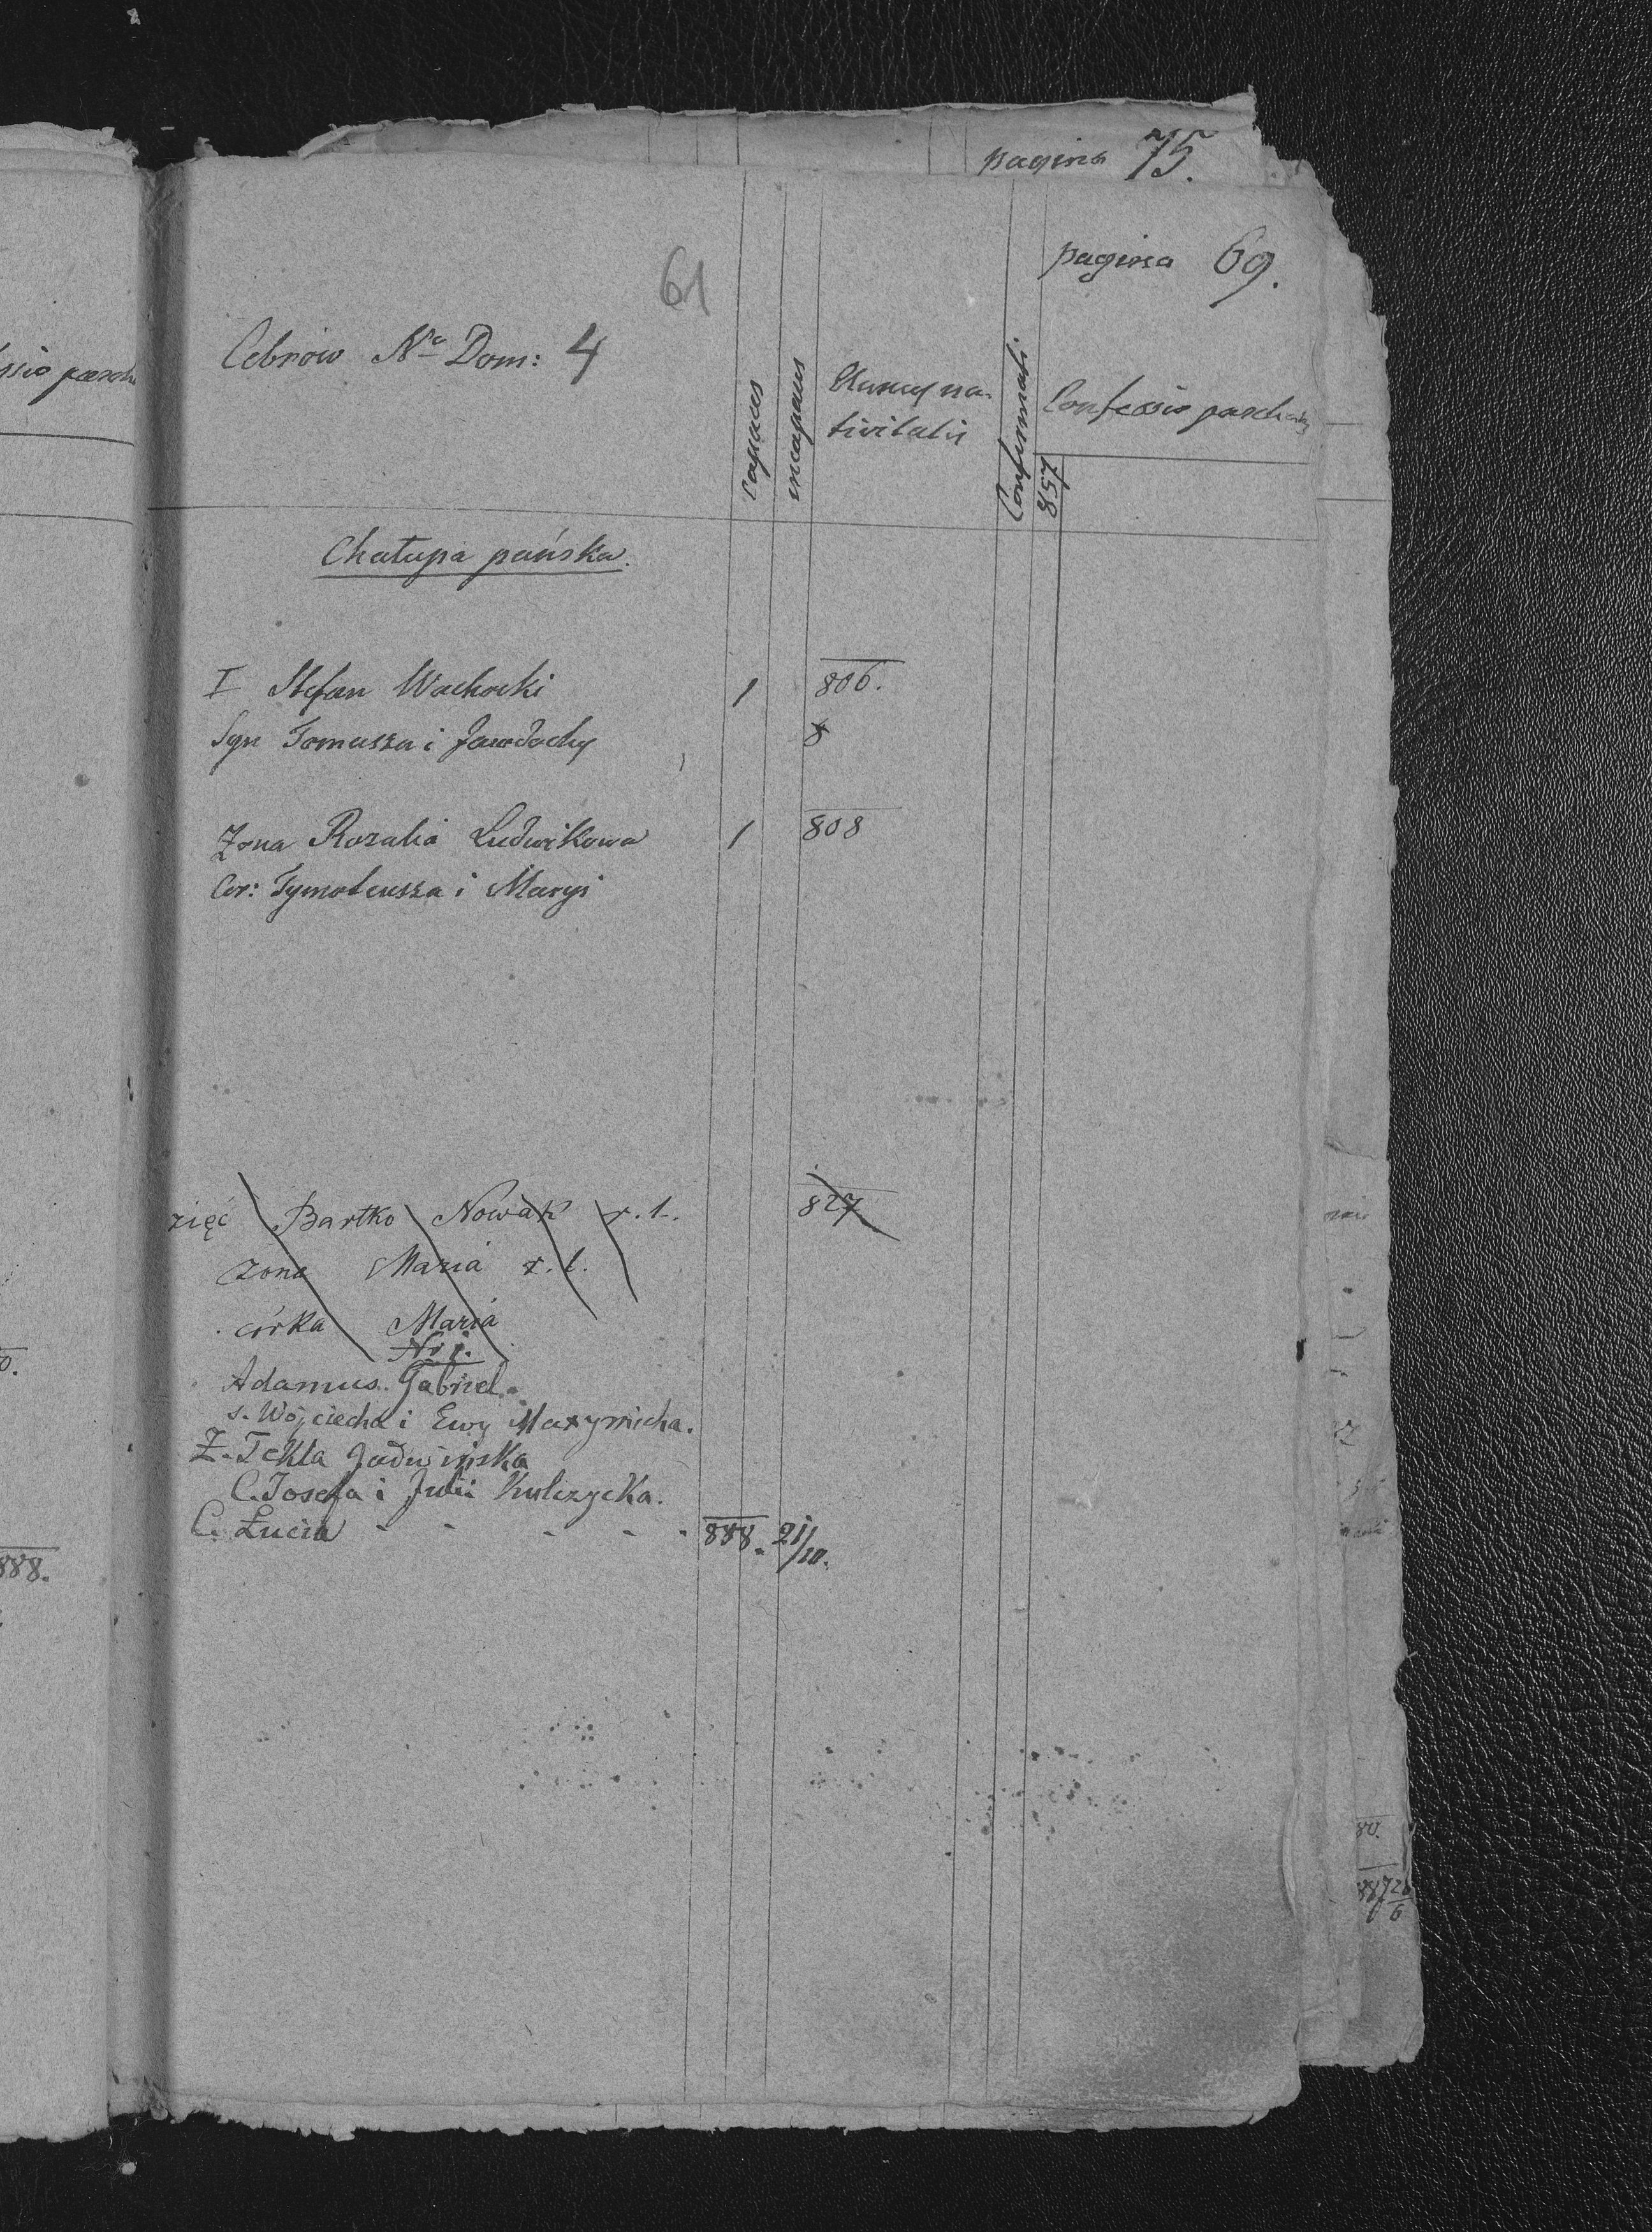 pagina 75.
pagina 69.
61
Cebrów Nro Dom: 4
capaces
incapaces
Annus na-
tivitatis
Confirmati
Confessio paschalis
857
Chałupa pańska.
I Stefan Wachocki 1 806.
Syn Tomasza i Jawdochy 8
Żona Rozalia Ludwikowa 1 808
Cor: Tymoteusza i Maryi
zięć Bartko Nowak r. l. 827
żona Maria r. l.
córka Maria
Nr j.
Adamus Gabriel
s. Wojciecha i Ewy Maxymicha.
Ż. Tekla Jadwińska
C. Josefa i Julii Kulczycka.
C. Łucia - - - - - 888. 21/10.
888.
80.
887 26/6